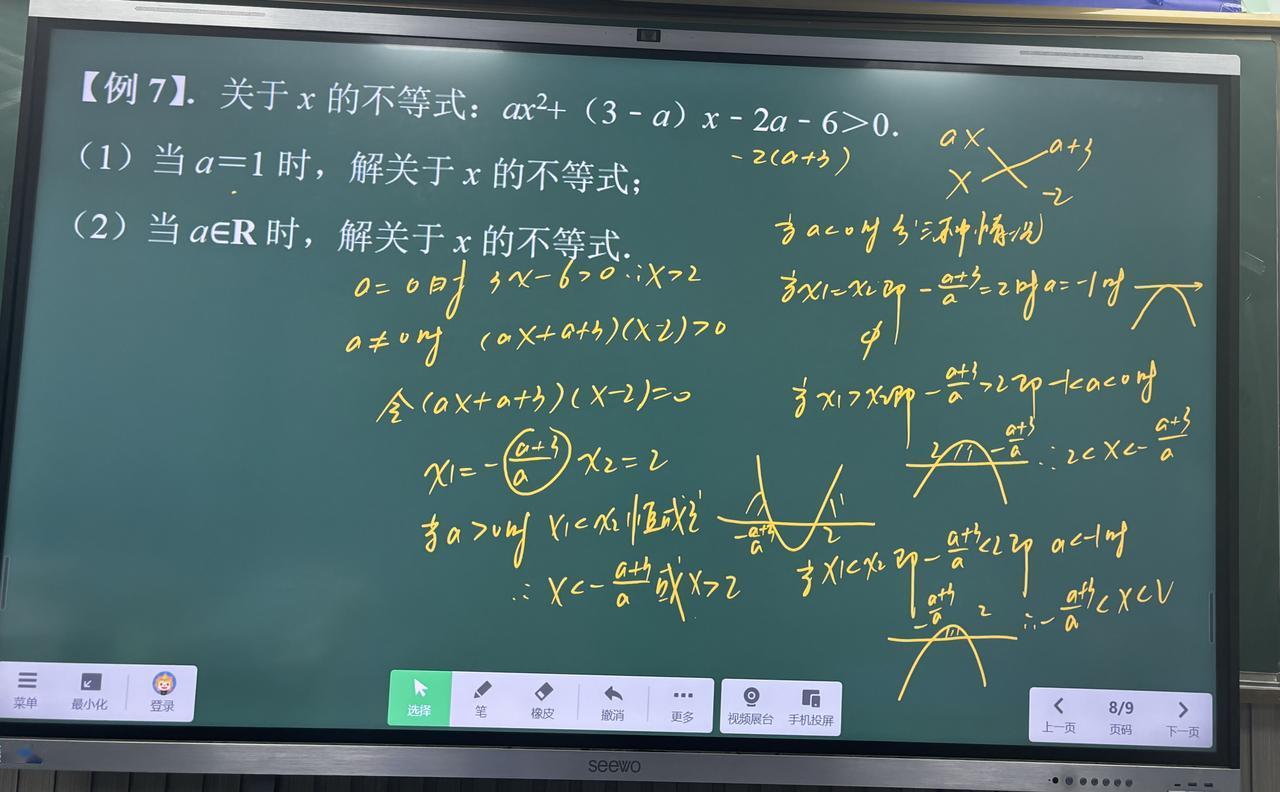 【例 7】. 关于 x 的不等式：ax²+（3﹣a）x﹣2a﹣6＞0.
-2(a+3)
（1）当 a＝1 时，解关于 x 的不等式；
（2）当 a∈R 时，解关于 x 的不等式.
a=0时 3x-6>0 ∴x>2
a≠0时 (ax+a+3)(x-2)>0
令(ax+a+3)(x-2)=0
x1=-(a+3)/a x2=2
当a>0时 x1<x2恒成立
-(a+3)/a 2
∴ x<-(a+3)/a 或x>2
ax a+3
x -2
当a<0时 分三种情况
当x1=x2即 -(a+3)/a=2时a=-1时
φ
当x1>x2即 -(a+3)/a>2即 -1<a<0时
2 -(a+3)/a ∴2<x<-(a+3)/a
当x1<x2即 -(a+3)/a<2即 a<-1时
-(a+3)/a 2 ∴-(a+3)/a<x<2
菜单 最小化 登录
选择 笔 橡皮 撤消 更多
视频展台 手机投屏
上一页 8/9 页码 下一页
seewo